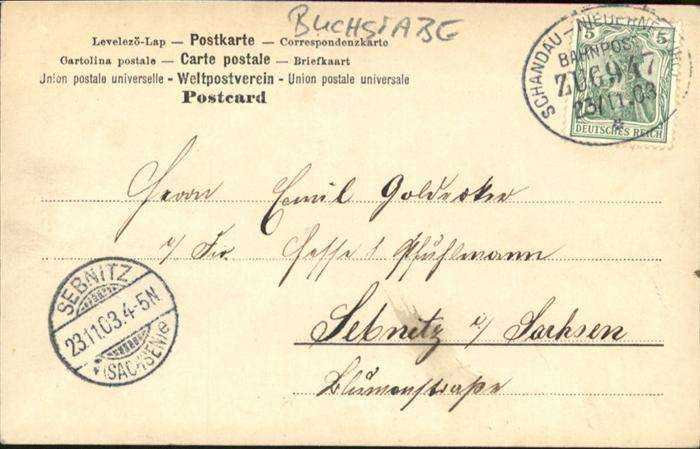 BUCHSTABE
Levelező-Lap — Postkarte — Correspondenzkarte
Cartolina postale — Carte postale — Briefkaart
Union postale universelle — Weltpostverein - Union postale universale
Postcard
SCHANDAU-NIEDERNE
BAHNPOST
ZUG 947
23/11.03
*
5 5
DEUTSCHES REICH
Herrn Emil
Hesse & Pfuhlmann
Sebnitz i/ Sachsen
Blumenstraße
SEBNITZ
23.11.03.4-5N
*(SACHSEN)e